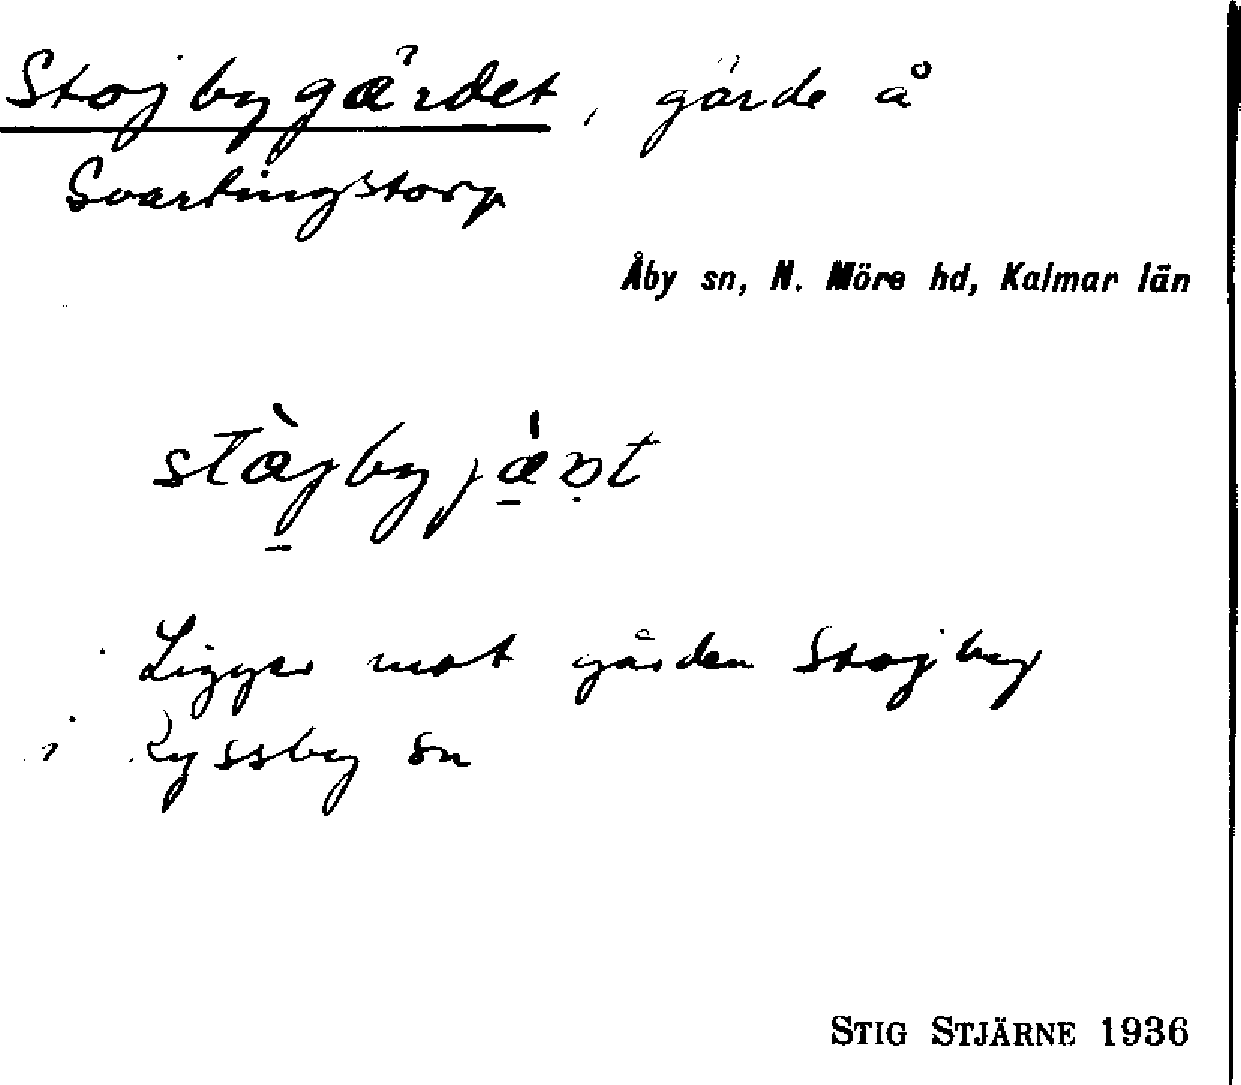 Stojbygärdet, gärde å
Svartingstorp
Åby sn, N. Möre hd, Kalmar län
Ligger mot gården Stojby
i Ryssby sn
STIG STJÄRNE 1936